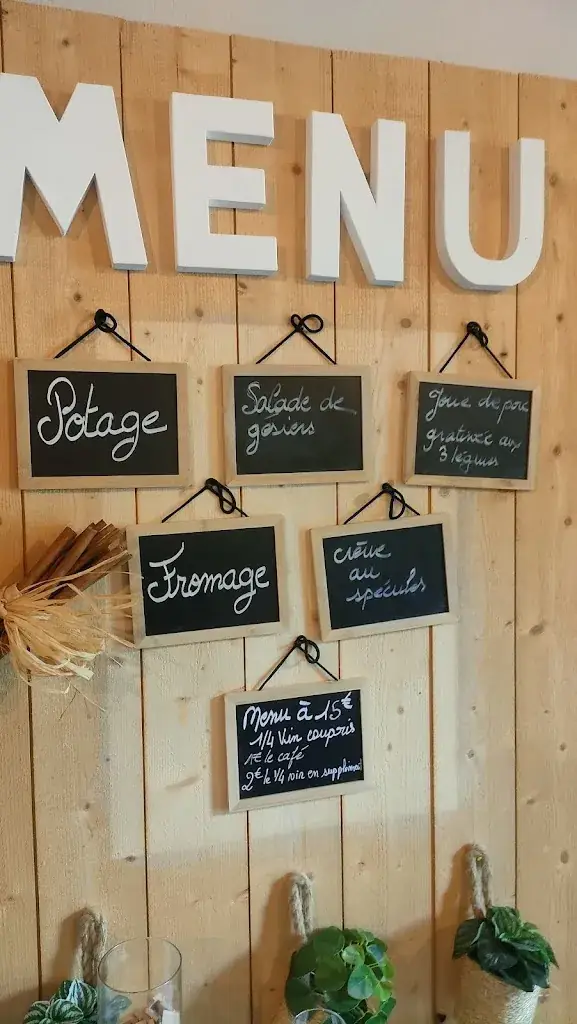 MENU
Potage
Salade de
gésiers
Joue de porc
gratinée aux
3 légumes
Fromage
crème
au
spéculos
Menu à 15€
1/4 Vin compris
1€ le café
2€ le 1/4 vin en supplément